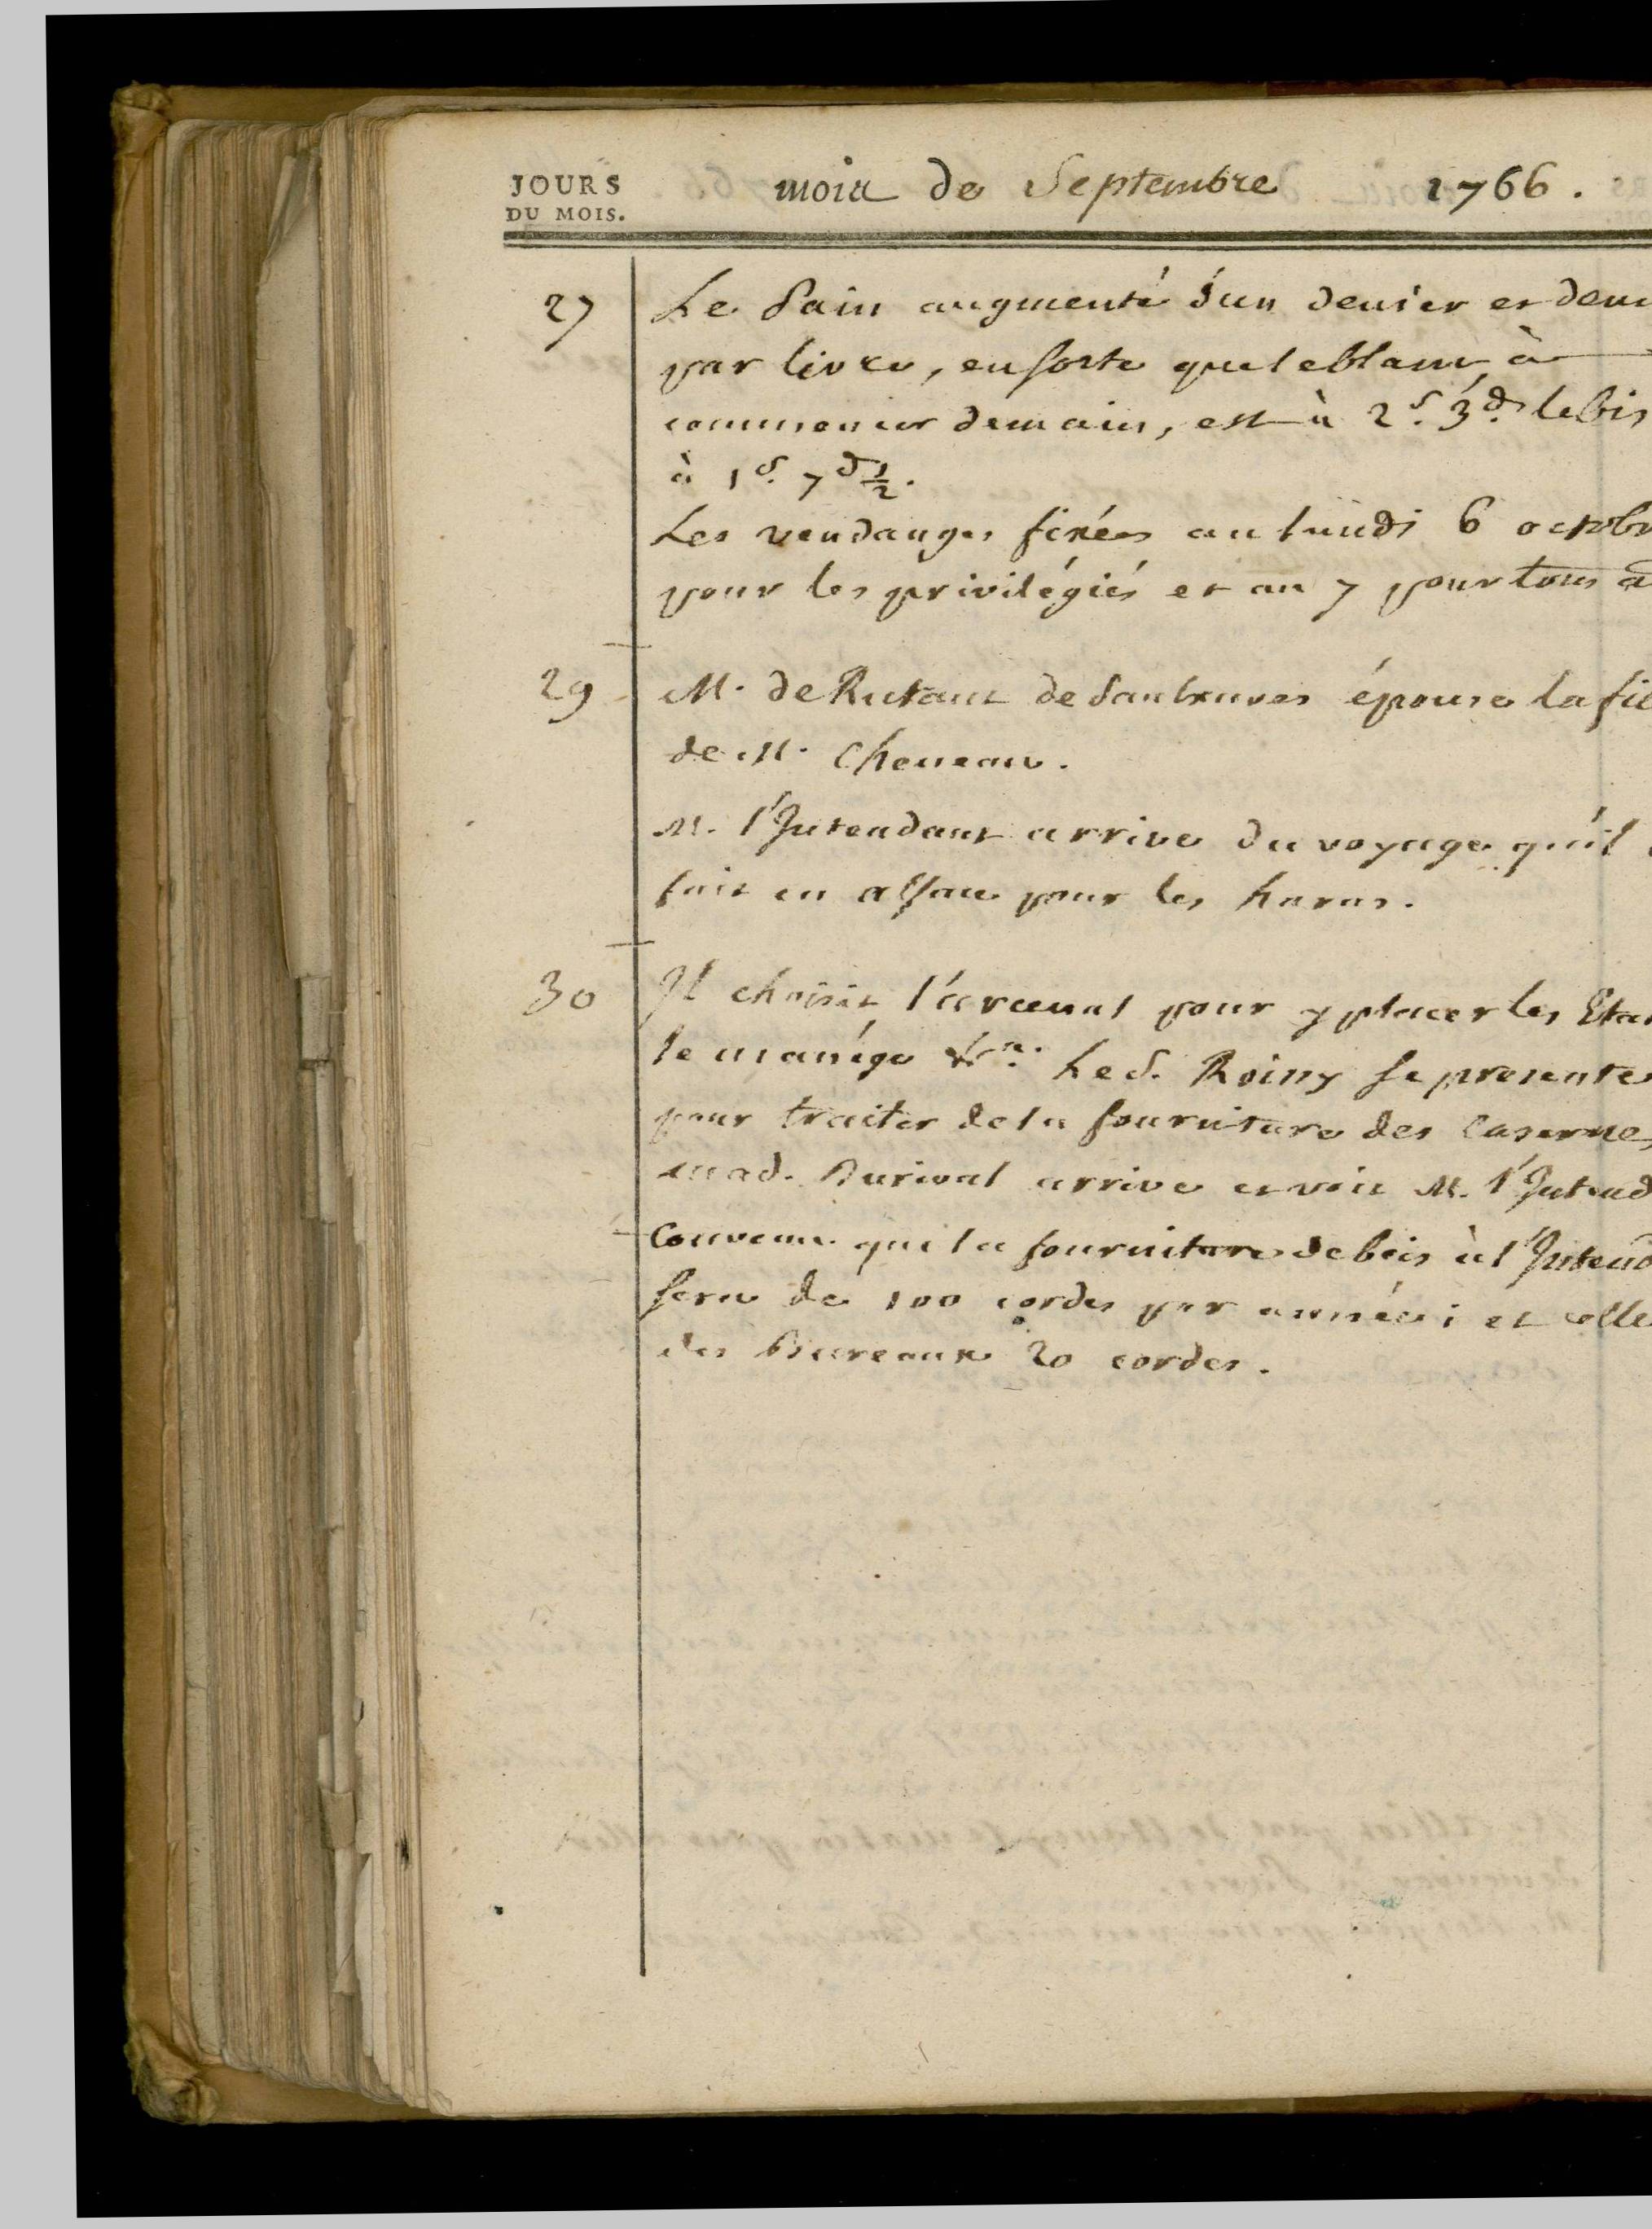 JOURS
DU MOIS.
mois de Septembre 1766.
27 Le Pain augmenté d'un denier et dem
par livre, ensorte que le blanc à
commencer demain, est à 2.s 3.d le bis
à 1.s 7d 1/2.
Les vendanges fixées au lundi 6 octobr
pour les privilégiés et au 7 pour tous a
29 M. de Rutant de Saulxures épouse la fil
de M. Cheneau.
M. l'Intendant arrive du voyage qu'il
fait en alsace pour les haras.
30 Il choisit l'arcenal pour y placer les Etal
le manége &ca. Le S. Roiny se presente
pour traiter de la fourniture des Casernes
mad. Durival arrive et voit M. l'Intend
Convenu que la fourniture de bois à l'Intend
sera de 100 cordes par année; et celle
des Bureaux 20 cordes.